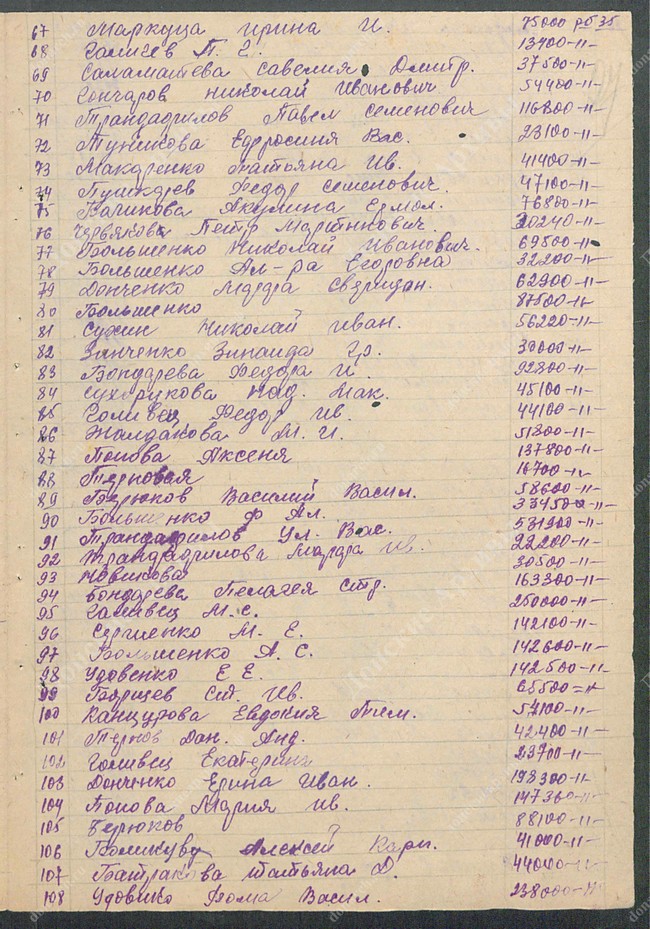 67 Маркуца Ирина И. 75000 рб 35
68 Галичев П. Г. 13400-11-
69 Саламатева Савелия Дмитр. 37500-11-
70 Гончаров Николай Иванович 54400-11-
71 Трандафилов Павел Семенович 116800-11-
72 Туникова Ефросиния Вас. 23100-11-
73 Макаренко Татьяна Ив. 41400-11-
74 Пушкарев Федор Семенович. 47100-11-
75 Акулина Ермол. 76800-11-
76 Червякова Петр Мартынович. 20240-11-
77 Больменко Николай Иванович. 69500-11-
78 Больменко Ал-ра Егоровна 32200-11-
79 Донченко Марфа 62900-11-
80 Больменко 87500-11-
81 Сухин Николай Иван. 56220-11-
82 Зинченко Зинаида Гр. 39000-11-
83 Бондарева Федора И. 92800-11-
84 Сухорукова Над. Мак. 45100-11-
85 Голивец Федор Ив. 44100-11-
86 Жалдакова М. И. 51800-11-
87 Попова Аксеня 137800-11-
88 Терновая 16700-11-
89 Бирюков Василий Васил. 58600-11-
90 Больменко Ф Ал. 334500-11-
91 Трандафилов Ул. Вас. 531900-11-
92 Трандафилова Марфа Ив. 22200-11-
93 Новикова 30500-11-
94 Бондарева Пелагея 163300-11-
95 Галивец М. С. 250000-11-
96 Сергиенко М. Е. 142100-11-
97 Больменко А. С. 142600-11-
98 Удовенко Е Е. 142500-11-
99 Ив. 65500-11-
100 Канцурова Евдокия Тим. 54100-11-
101 Терков Дан. Анд. 42400-11-
102 Голивец Екатерина 23700-11-
103 Донченко Ерина Иван. 198300-11-
104 Попова Мария Ив. 147300-11-
105 Берюков 88100-11-
106 Алексей Карп. 41000-11-
107 Батракова Татьяна Д. 44000-11-
108 Удовико Фома Васил. 238000-11-